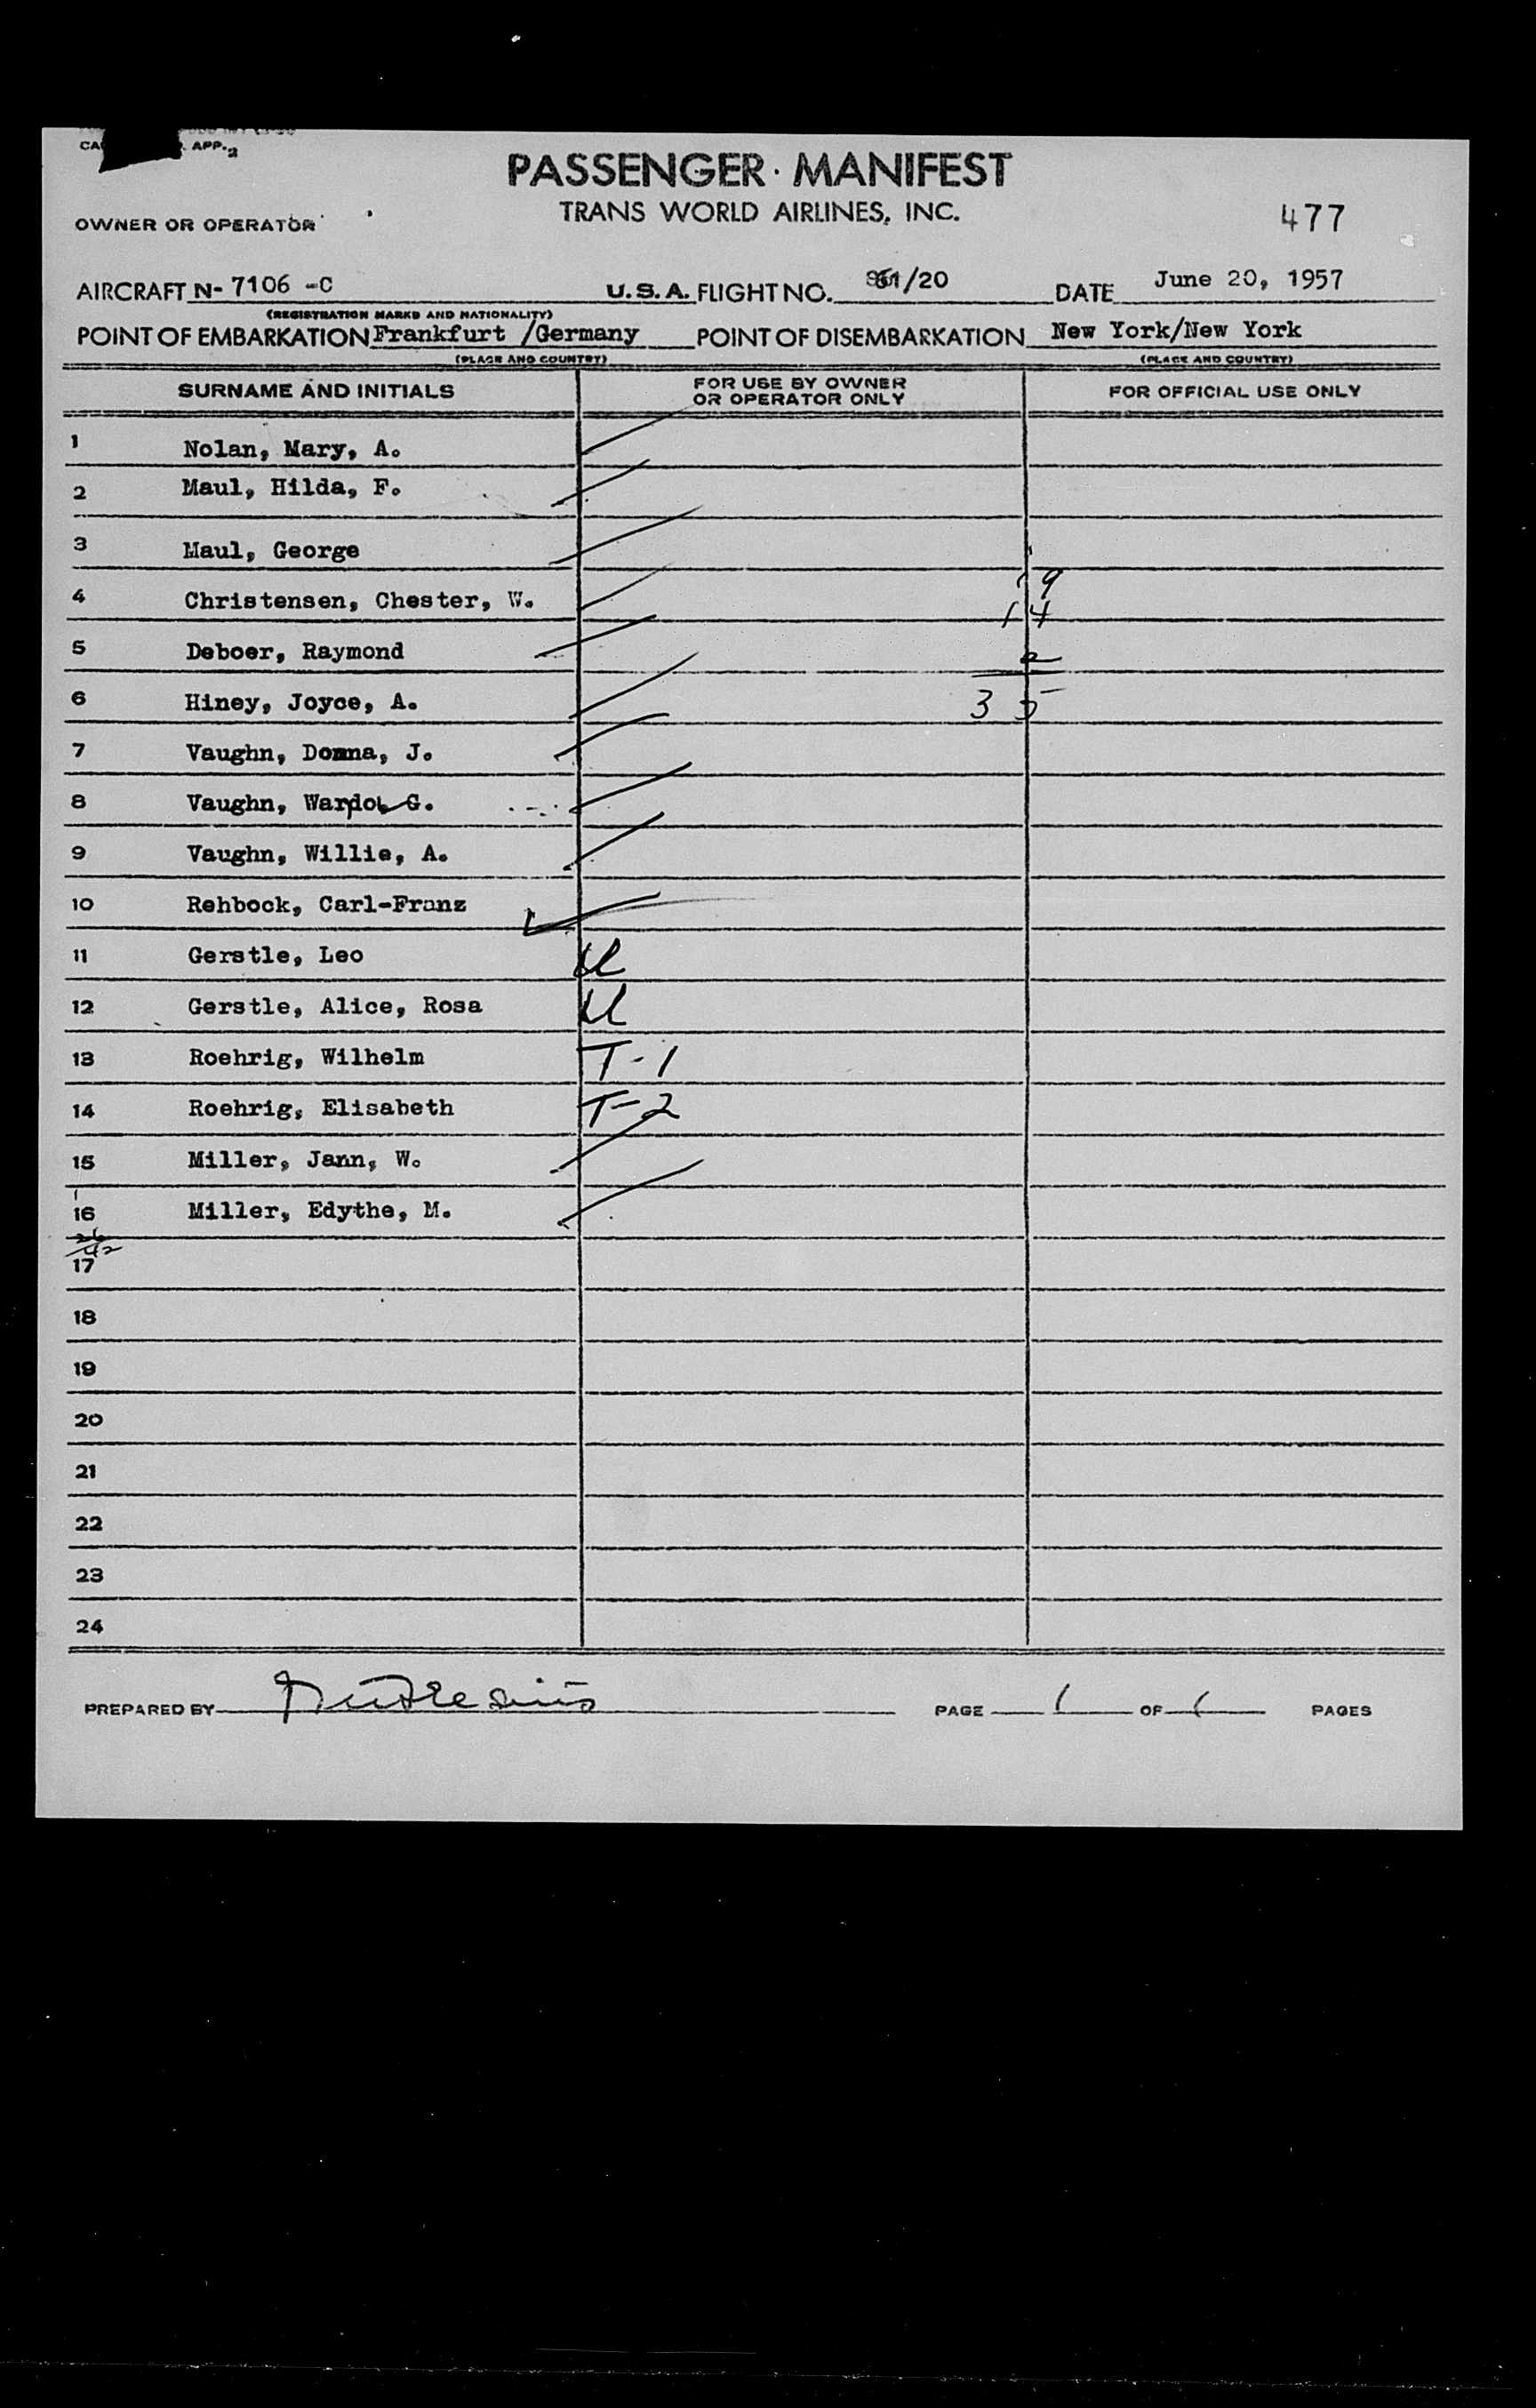 APP. 2
PASSENGER MANIFEST
TRANS WORLD AIRLINES, INC.
477
OWNER OR OPERATOR
AIRCRAFT N- 7106 -C U.S.A. FLIGHT NO. /20 DATE June 20, 1957
(REGISTRATION MARKS AND NATIONALITY)
POINT OF EMBARKATION Frankfurt /Germany POINT OF DISEMBARKATION New York/New York
(PLACE AND COUNTRY) (PLACE AND COUNTRY)
SURNAME AND INITIALS FOR USE BY OWNER OR OPERATOR ONLY FOR OFFICIAL USE ONLY
1 Nolan, Mary, A.
2 Maul, Hilda, F.
3 Maul, George
19
4 Christensen, Chester, W.
14
5 Deboer, Raymond
2
6 Hiney, Joyce, A. 35
7 Vaughn, Donna, J.
8 Vaughn, G.
9 Vaughn, Willie, A.
10 Rehbock, Carl-Franz
11 Gerstle, Leo U
12 Gerstle, Alice, Rosa U
13 Roehrig, Wilhelm T-1
14 Roehrig, Elisabeth T-2
15 Miller, Jann, W.
16 Miller, Edythe, M.
26
42
17
18
19
20
21
22
23
24
PREPARED BY PAGE 1 OF 1 PAGES